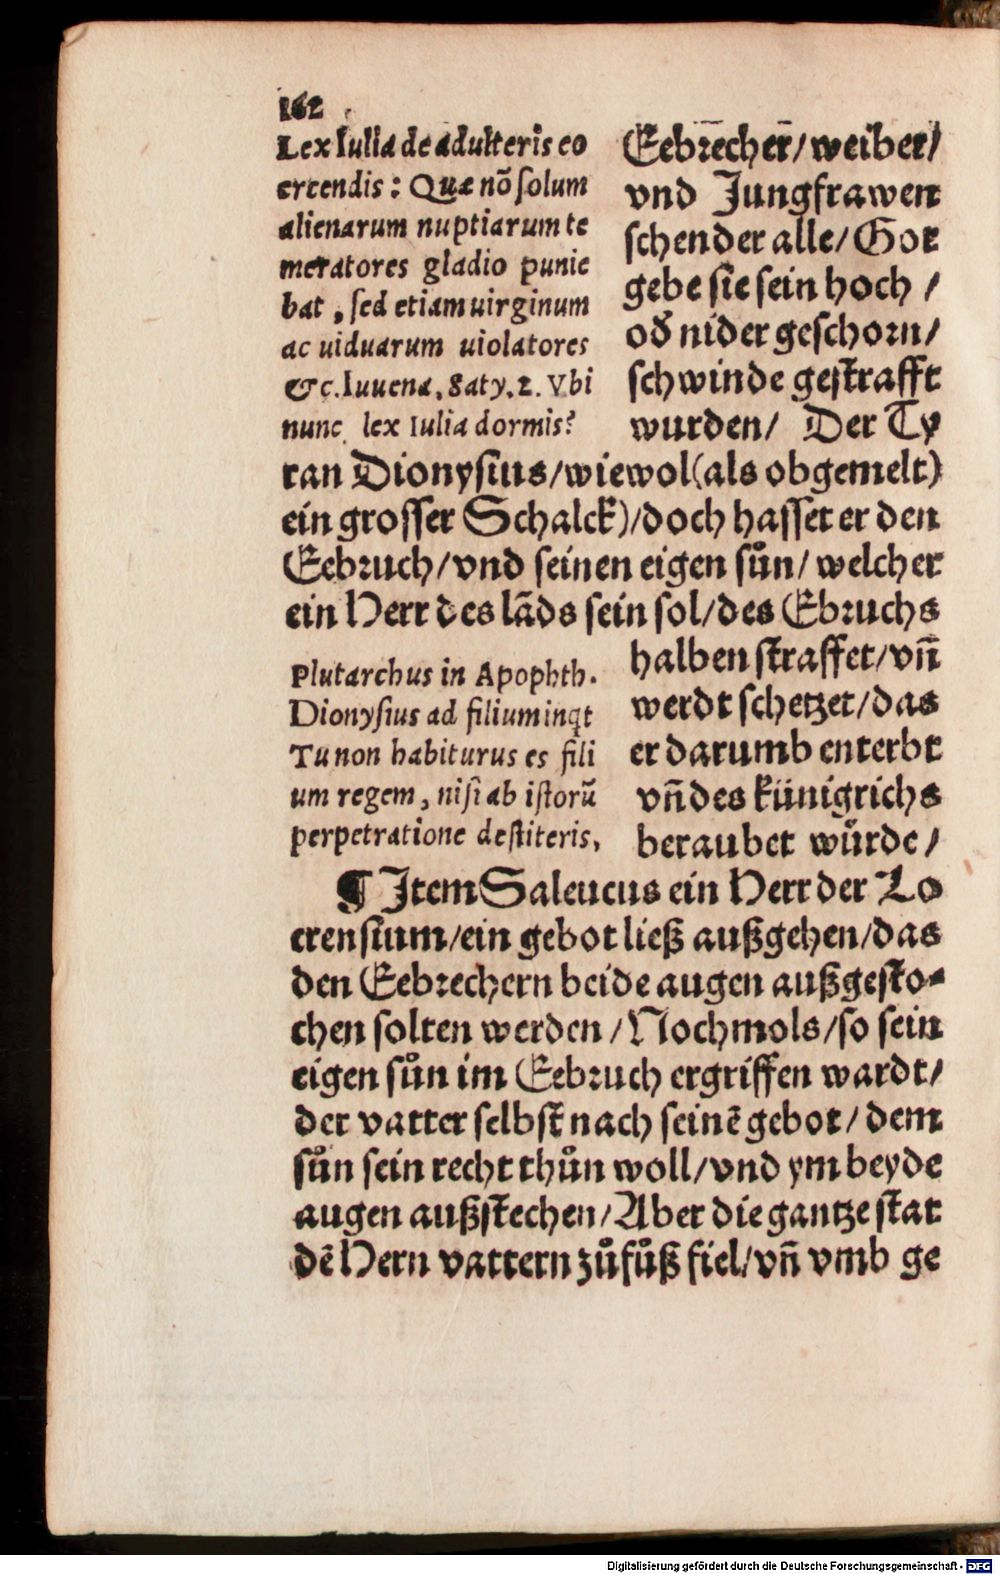 162
Lex Iulia de adulteris co
ercendis: Quæ nõ solum
alienarum nuptiarum te
meratores gladio punie
bat, sed etiam uirginum
ac uiduarum uiolatores
&c. Iuuena. Saty. 2. Vbi
nunc lex Iulia dormis?
Eebrecher / weiber /
vnd Jungfrawen
schender alle / Got
gebe sie sein hoch /
od̕ nider geschorn /
schwinde gestrafft
wurden / Der Ty
ran Dionysius / wiewol (als obgemelt)
ein grosser Schalck) / doch hasset er den
Eebruch / vnd seinen eigen sůn / welcher
ein Herr des lãds sein sol / des Ebruchs
Plutarchus in Apophth.
Dionysius ad filium inqt
Tu non habiturus es fili
um regem, nisi ab istorũ
perpetratione destiteris,
halben straffet / vñ
werdt schetzet / das
er darumb enterbt
vñ des künigrichs
beraubet wůrde /
¶ Item Saleucus ein Herr der Lo
crensium / ein gebot ließ außgehen / das
den Eebrechern beide augen außgesto-
chen solten werden / Nochmols / so sein
eigen sůn im Eebruch ergriffen wardt /
der vatter selbst nach seinẽ gebot / dem
sůn sein recht thůn woll / vnd ym beyde
augen außstechen / Aber die gantze stat
dẽ Hern vattern zůfůß fiel / vñ vmb ge
Digitalisierung gefördert durch die Deutsche Forschungsgemeinschaft - DFG